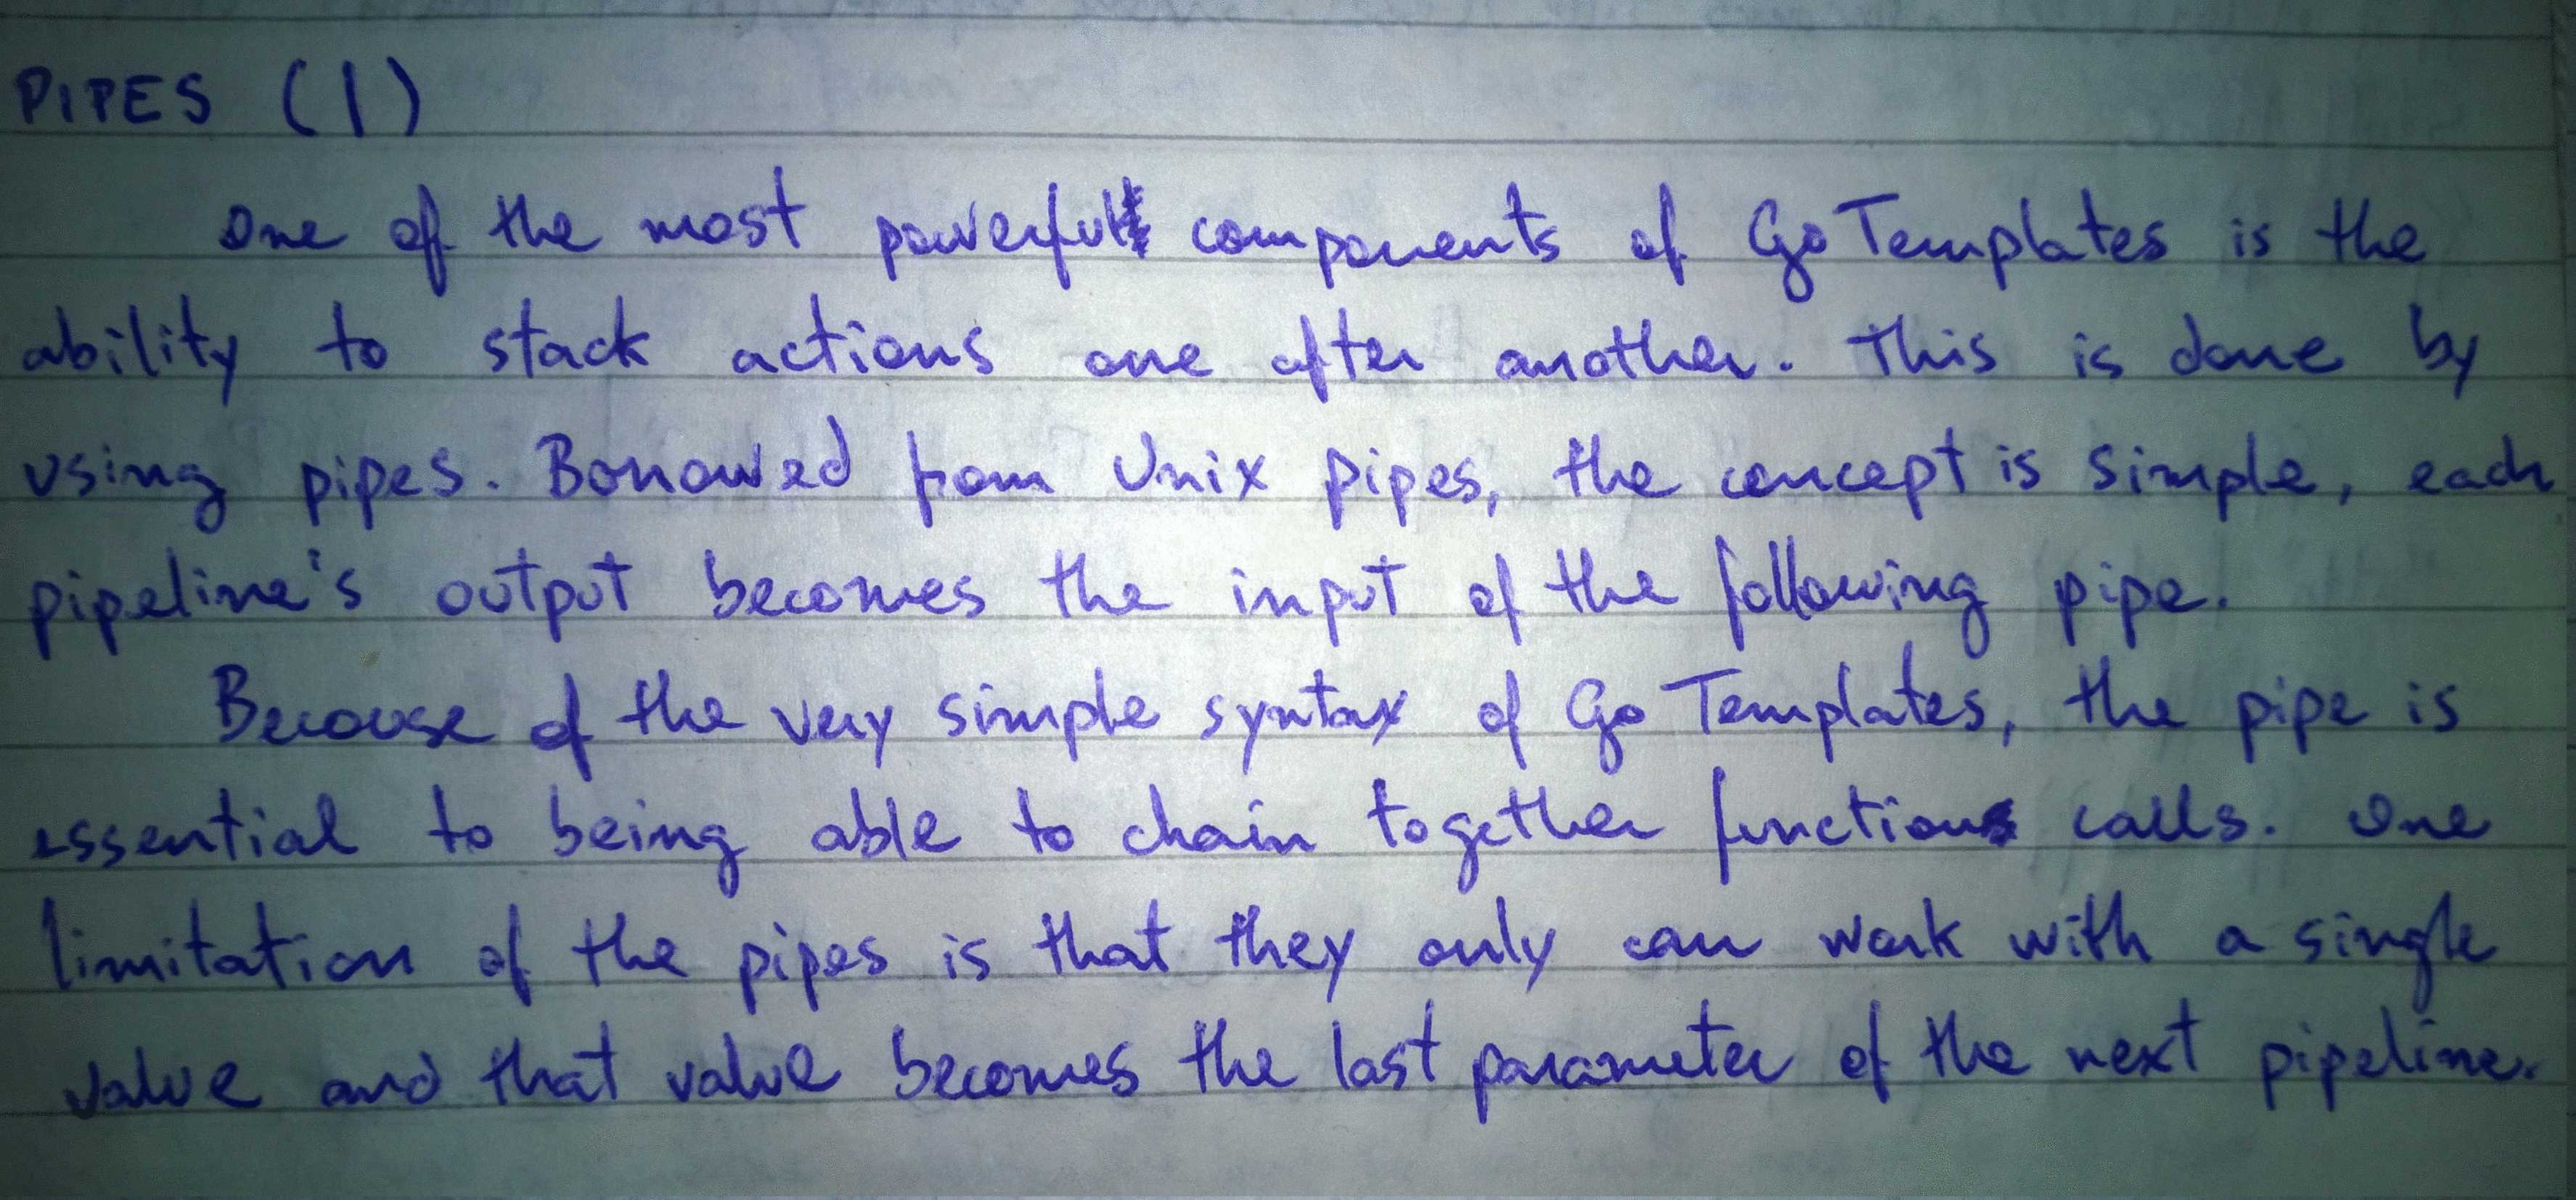 PIPES (1)
One of the most powerful components of Go Templates is the
ability to stack actions one after another. This is done by
using pipes. Borrowed from Unix pipes, the concept is simple, each
pipeline's output becomes the input of the following pipe.
Because of the very simple syntax of Go Templates, the pipe is
essential to being able to chain together function calls. One
limitation of the pipes is that they only can work with a single
value and that value becomes the last parameter of the next pipeline.